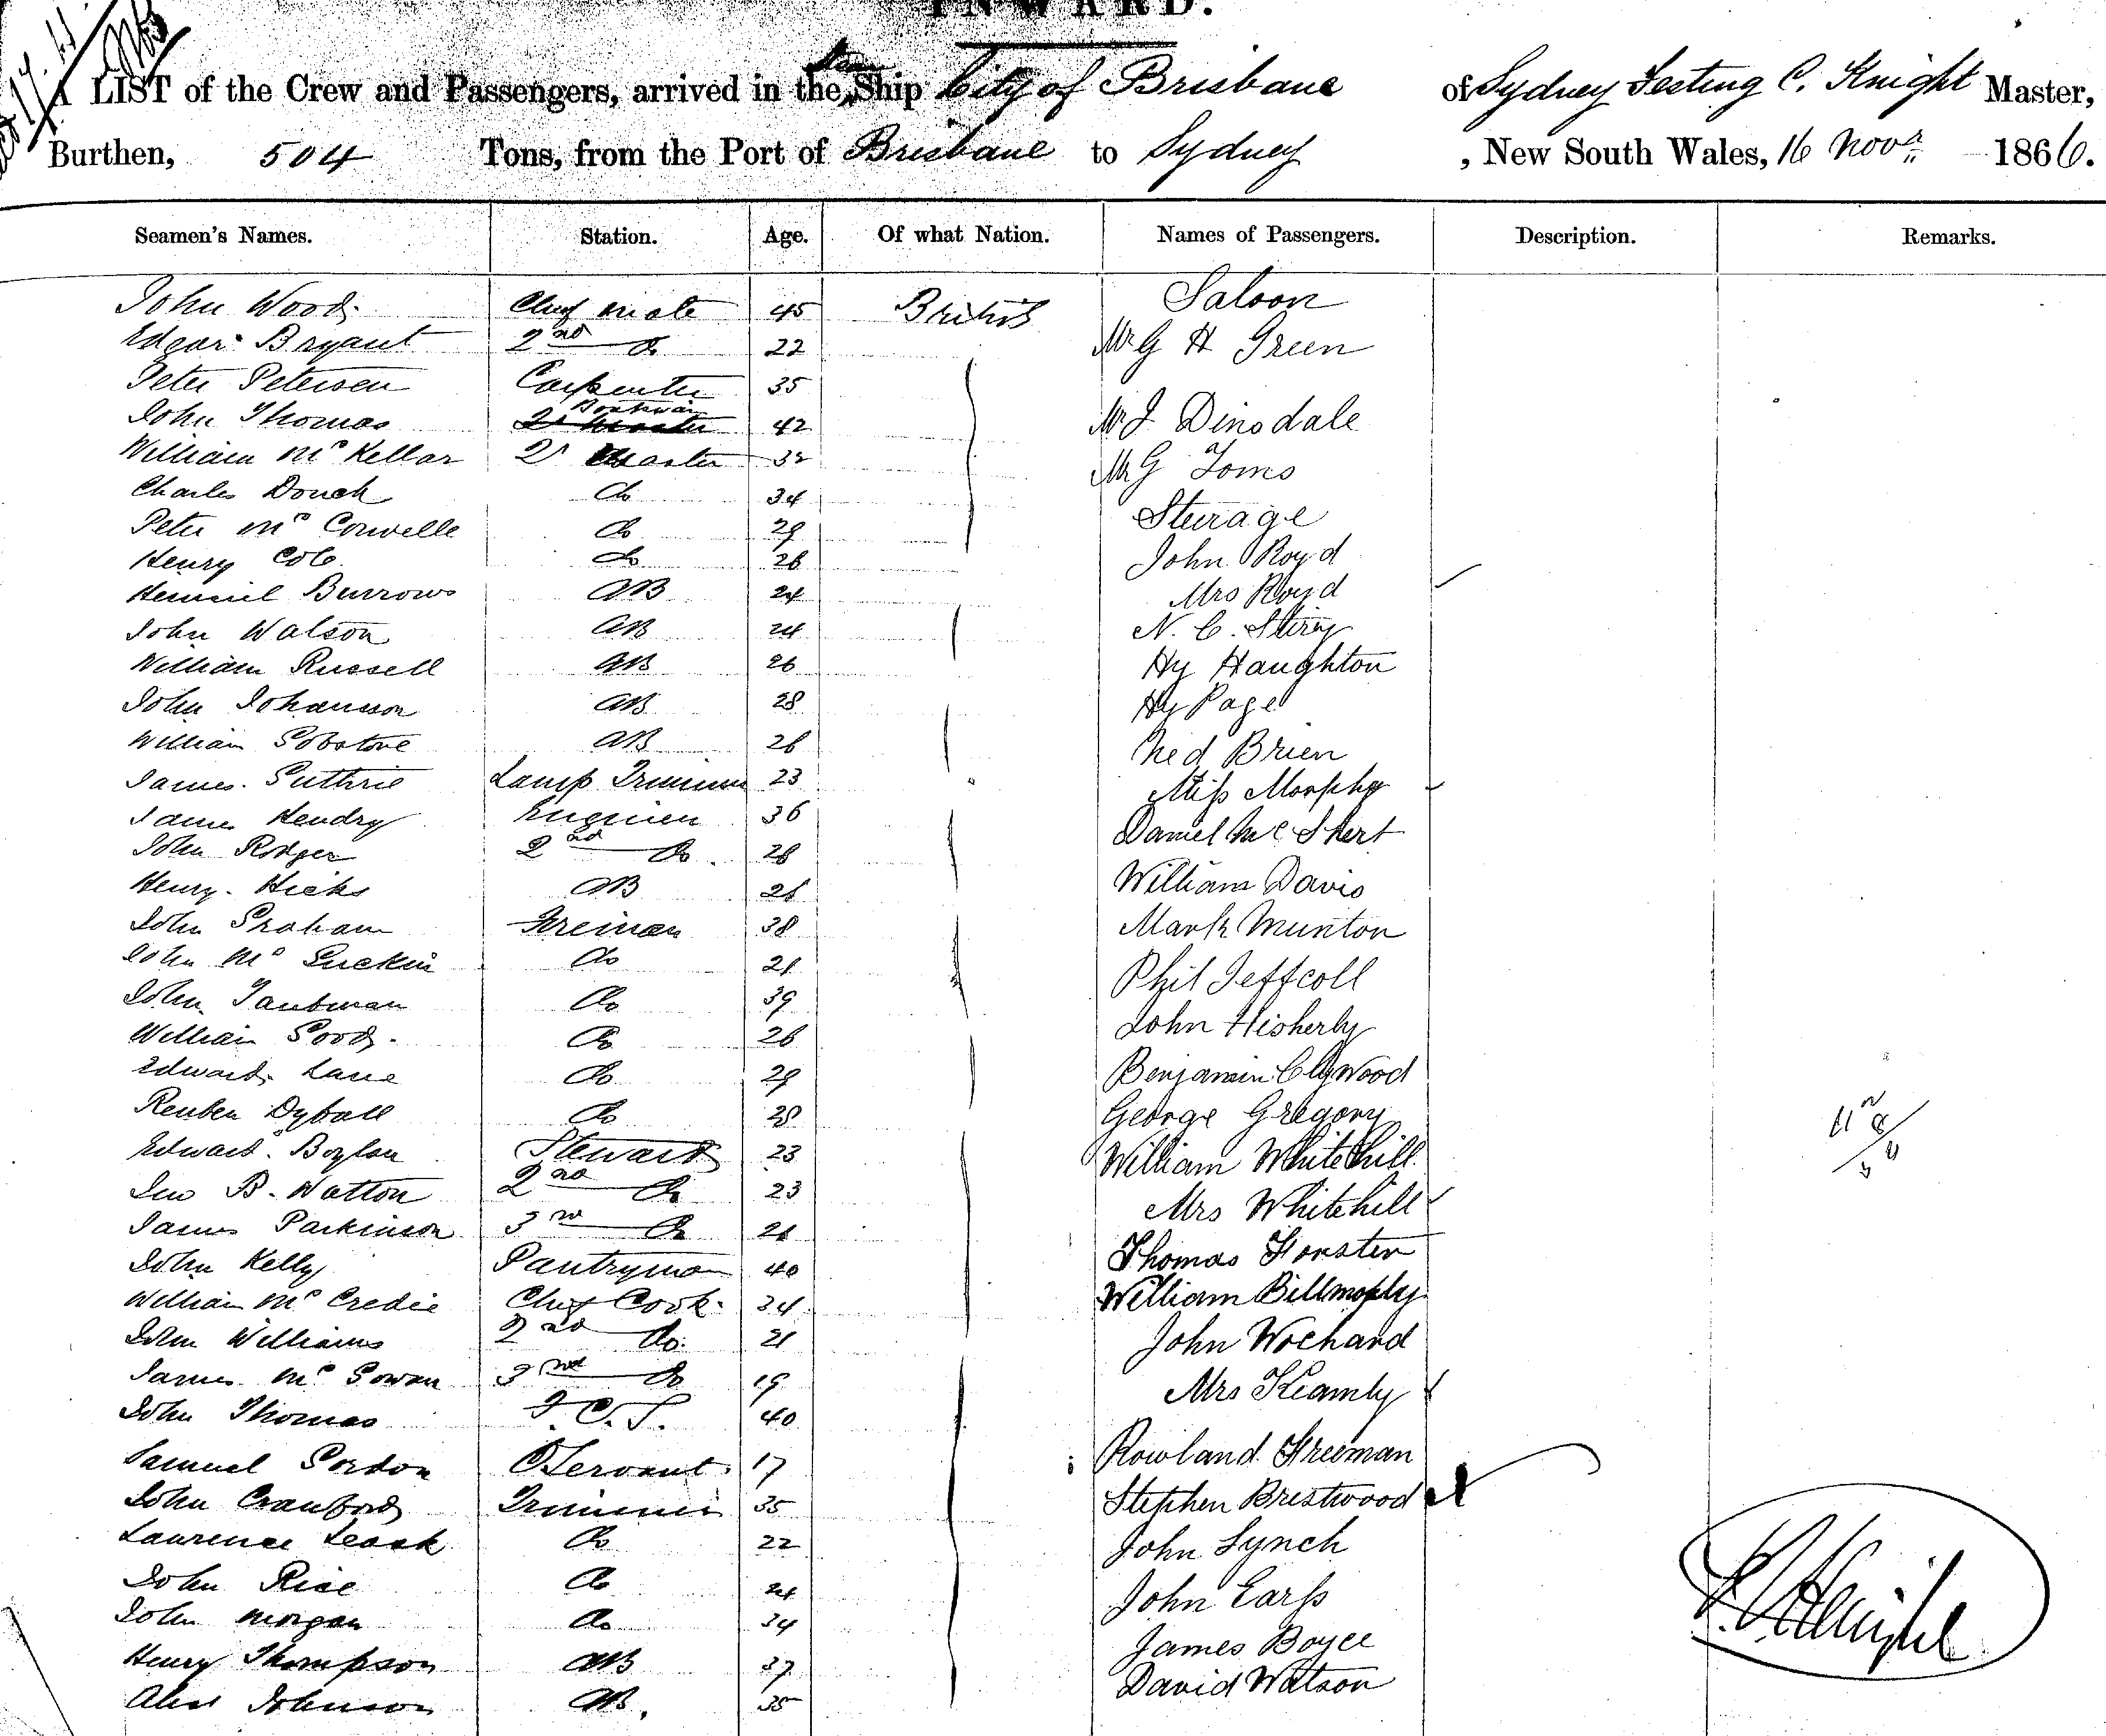 INWARD.
A LIST of the Crew and Passengers, arrived in the Steam Ship City of Brisbane of Sydney Festing C. Knight Master,
Burthen, 504 Tons, from the Port of Brisbane to Sydney, New South Wales, 16 Novr 1866.
Seamen's Names. Station. Age. Of what Nation. Names of Passengers. Description. Remarks.
John Wood Chief mate 45 British Saloon
Edgar Bryant 2nd Do 22 Mr G H Green
Peter Petersen Carpenter 35
John Thomas Boatswain 42 Mr J Dinsdale
William McKellar Qr Master 32 Mr G Toms
Charles Douch Do 34 Steerage
Peter McConvelle Do 29 John Boyd
Henry Cole Do 26 Mrs Boyd
Burrows AB 24 N. C.
John Watson AB 24 Hy Haughton
William Russell AB 26 Hy Page
John Johanson AB 28 Ned Brien
William AB 26 Miss Morphy
James Guthrie Lamp Trimmer 23 Daniel Mc
James Hendry Engineer 36 William Davis
John Rodger 2nd Do 28 Mark Munton
Henry Hicks AB 28 Phil Jeffcoll
John Graham Fireman 38 John Hisherly
John McGuckin Do 28 Benjamin Clywood
John Taubman Do 39 George Gregory
William Good Do 26 William Whitehill
Edward Lane Do 29 Mrs Whitehill
Reuben Dyball Do 28 Thomas Forster
Edward Boylan Steward 23 William
Jno B. Watton 2nd Do 23 John Wochard
James Parkinson 3rd Do 28 Mrs
John Kelly Pantryman 40 Rowland Freeman
William McCredie Chief Cook 34 Stephen Brestwood
John Williams 2nd Do 21 John Lynch
James McGowan 3rd Do 19 John Earls
John Thomas F.C.S. 40 James Boyce
Samuel Gordon Servant 17 David Watson
John Crawford Trimmer 35
Lawrence Leask Do 22
John Rice Do 24
John Morgan Do 34
Henry Thompson AB 37
Alex Johnson AB. 35